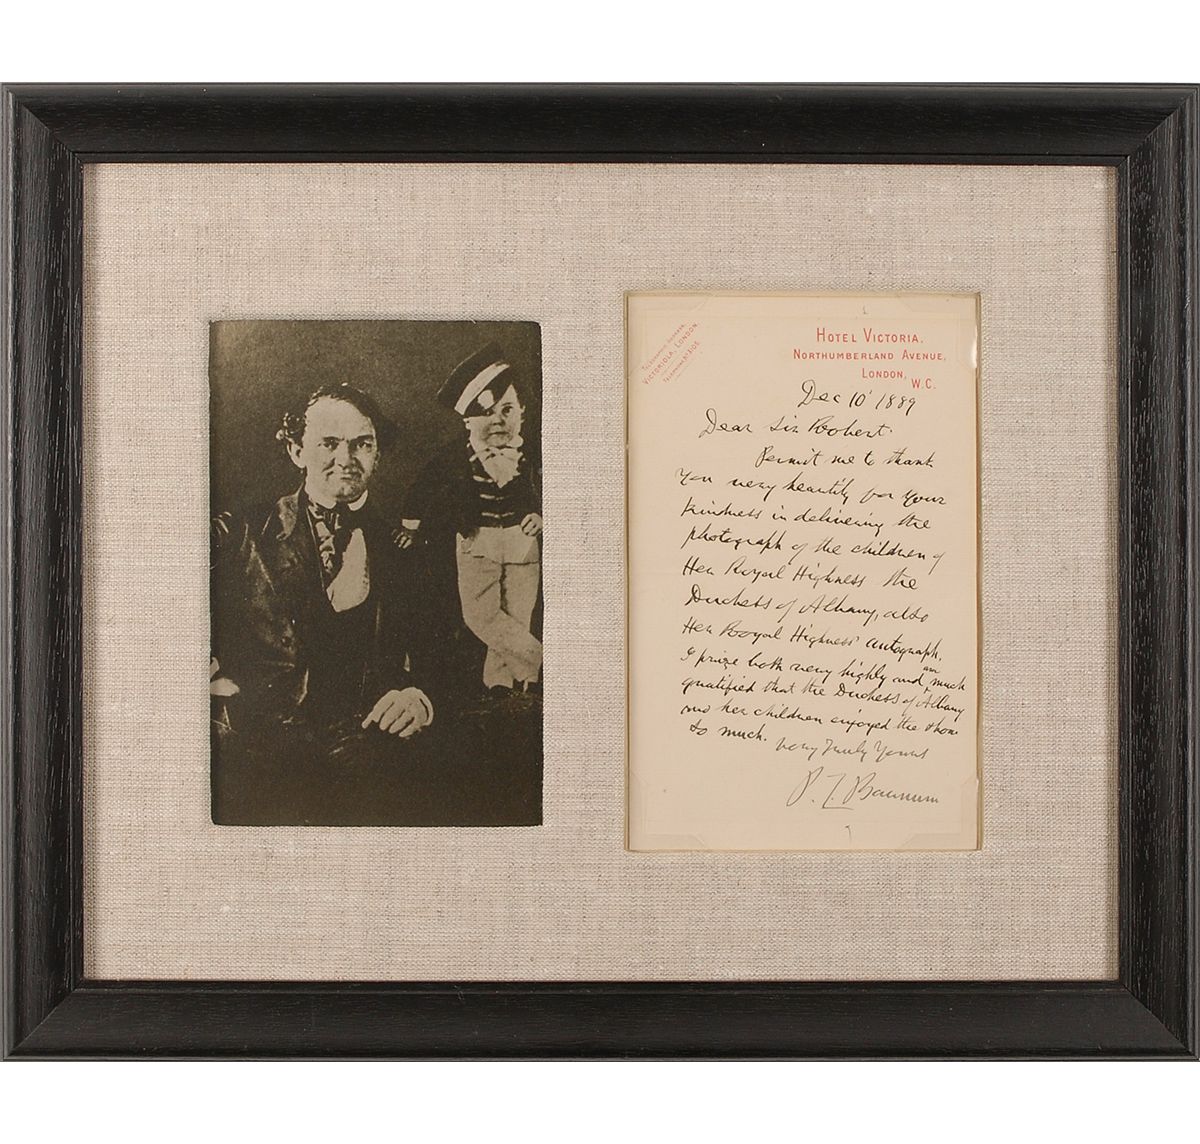 Victoriola, London.
Hotel Victoria.
Northumberland Avenue,
London, W.C.
Dec 10' 1889
Dear Sir Robert.
Permit me to thank
you very heartily for your
kindness in delivering the
photograph of the children of
Her Royal Highness the
Duchess of Albany, also
Her Royal Highness' autograph.
I prize both very highly and am much
gratified that the Duchess of Albany
and her children enjoyed the show
so much. Very Truly Yours
P. T. Barnum